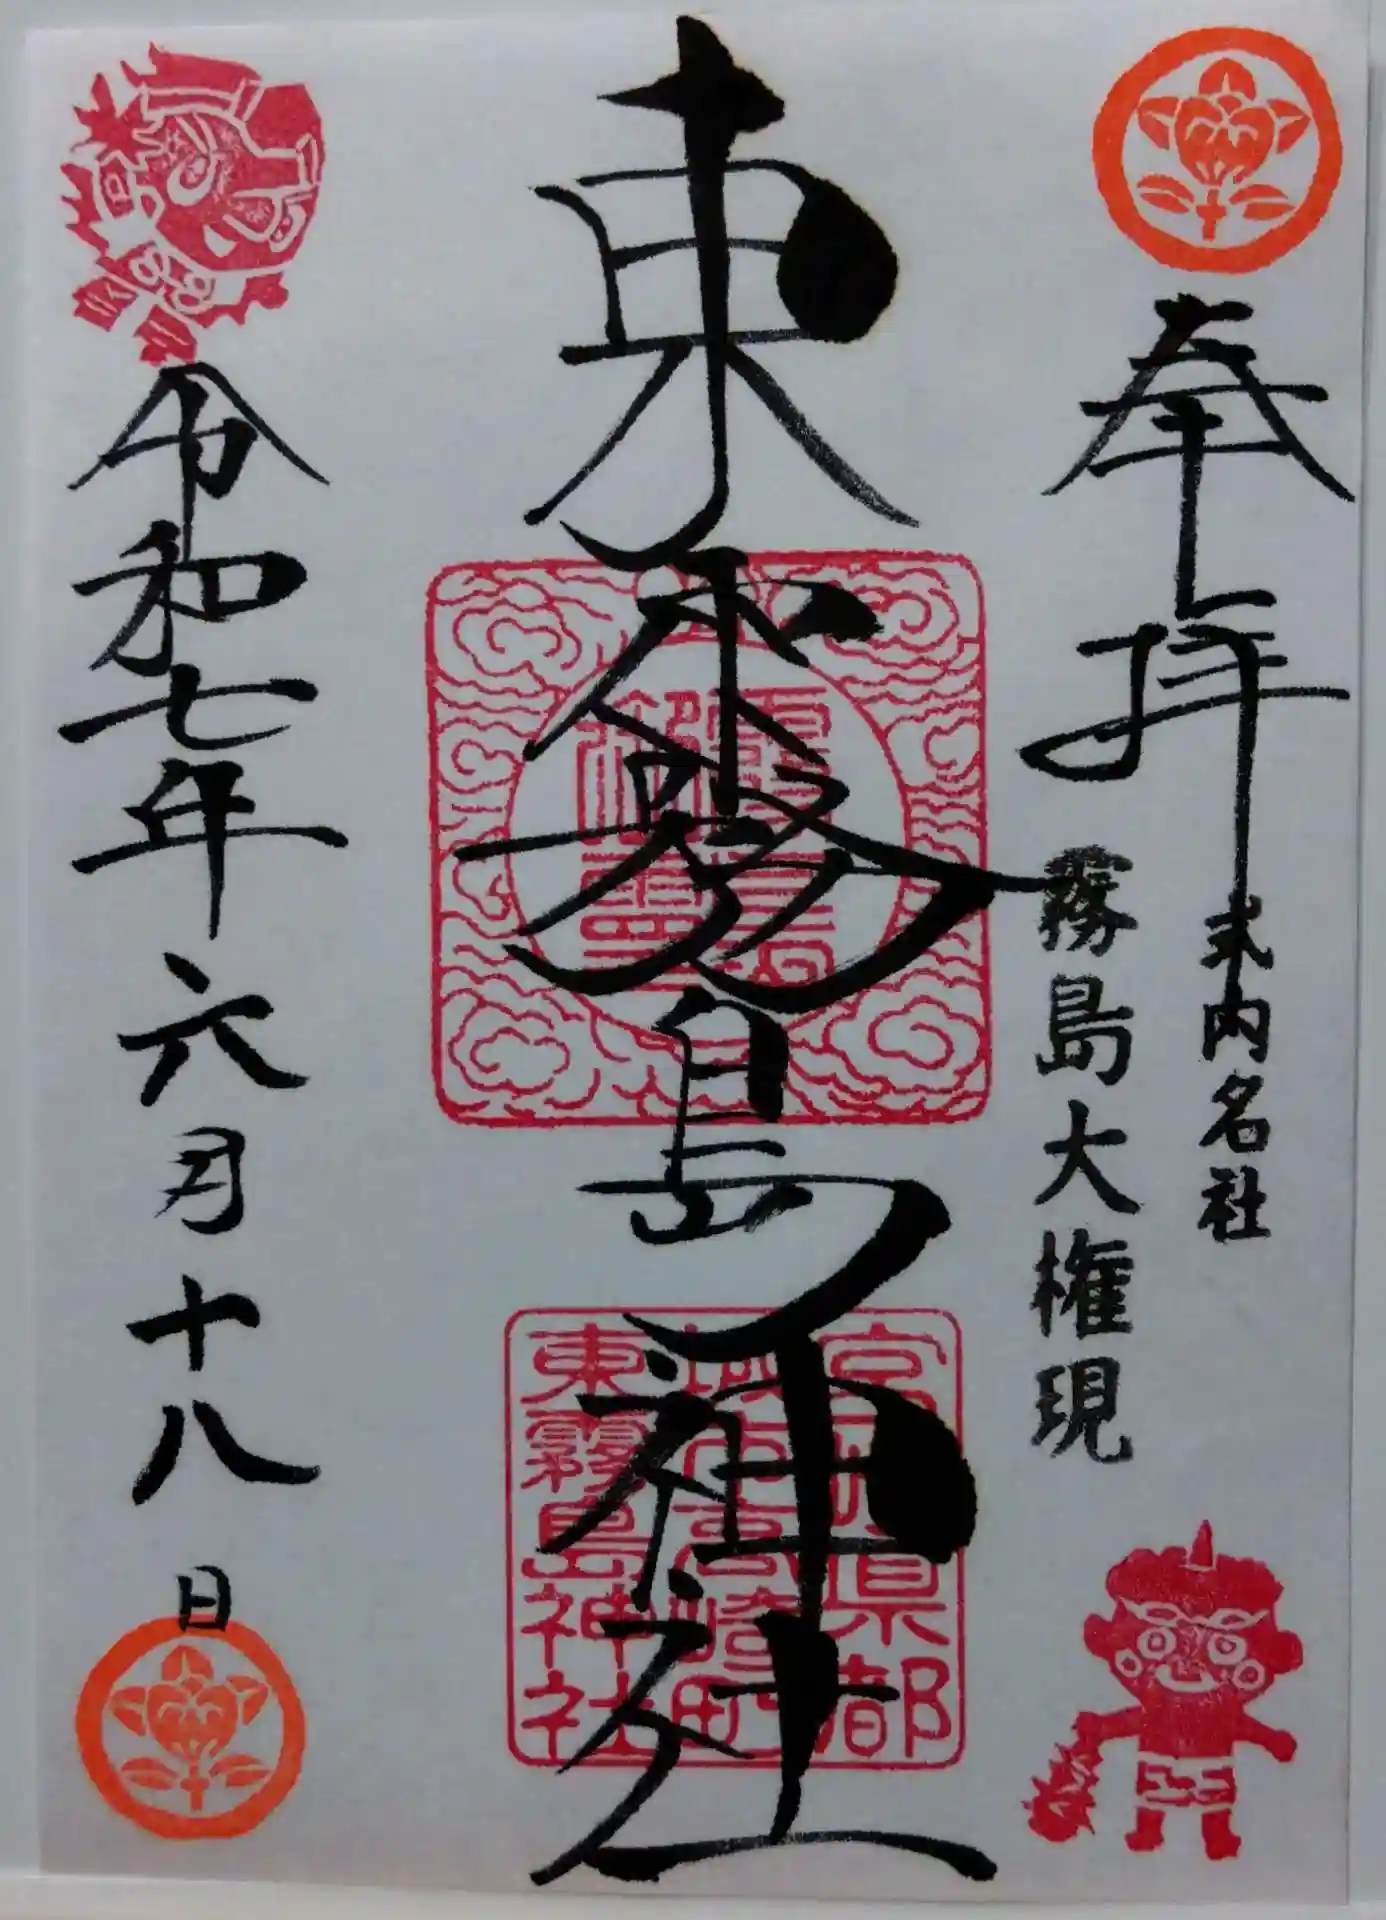 奉拝
式内名社
霧島大権現
東霧島神社
宮崎県都
城市高崎町
東霧島神社
令和七年六月十八日